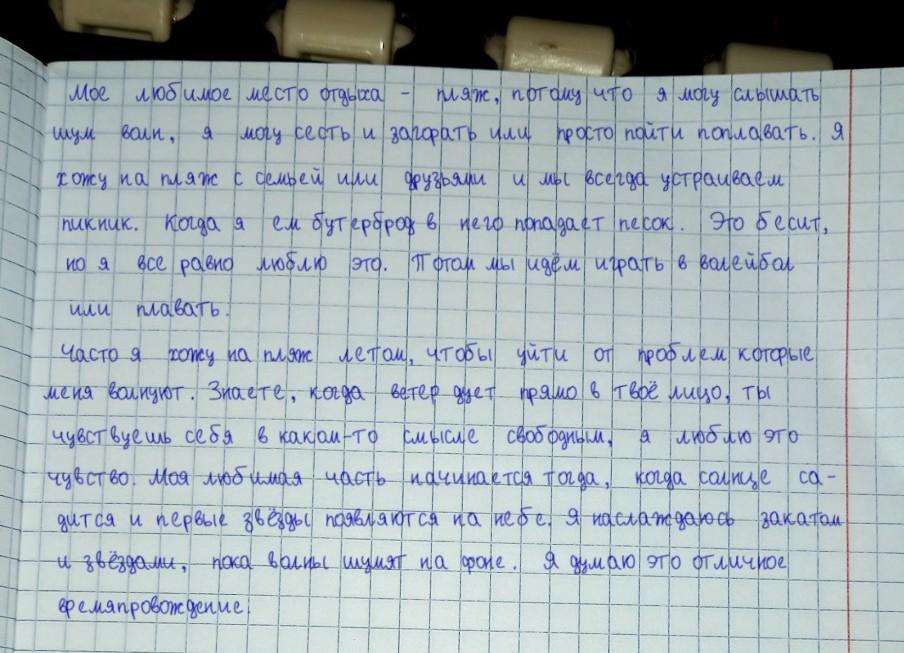 Мое любимое место отдыха - пляж, потому что я могу слышать
шум волн, я могу сесть и загорать или просто пойти поплавать. Я
хожу на пляж с семьей или друзьями и мы всегда устраиваем
пикник. Когда я ем бутерброд в него попадает песок. Это бесит,
но я все равно люблю это. Потом мы идём играть в волейбол
или плавать.
Часто я хожу на пляж летом, чтобы уйти от проблем которые
меня волнуют. Знаете, когда ветер дует прямо в твоё лицо, ты
чувствуешь себя в каком-то смысле свободным, я люблю это
чувство. Моя любимая часть начинается тогда, когда солнце са-
дится и первые звёзды появляются на небе. Я наслаждаюсь закатом
и звёздами, пока волны шумят на фоне. Я думаю это отличное
времяпровождение.